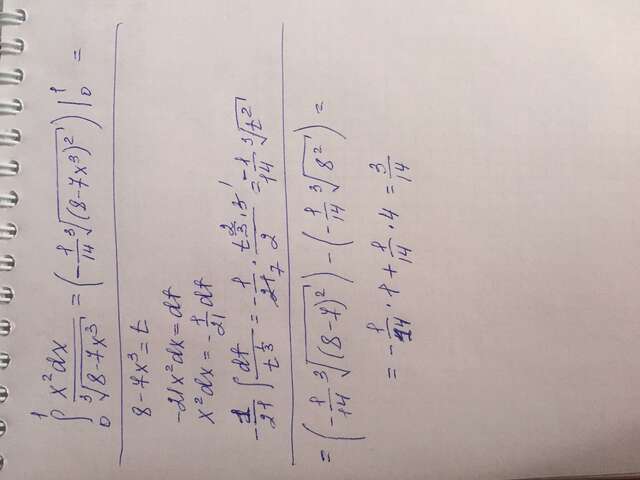 ∫₀¹ x²dx / ∛(8-7x³) = (-1/14 ∛((8-7x³)²)) |₀¹ =
8-7x³=t
-21x²dx=dt
x²dx=-1/21 dt
-1/21 ∫ dt/t^(1/3) = -1/21 · (t^(2/3)·3)/2 = -1/14 ∛(t²)
= (-1/14 ∛((8-7)²)) - (-1/14 ∛(8²)) =
= -1/14 · 1 + 1/14 · 4 = 3/14